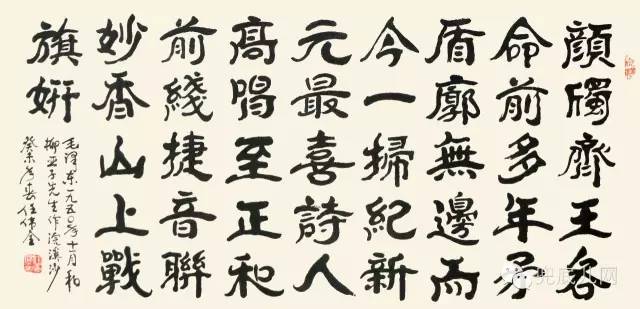 顔斶齊王各
命前多年矛
盾廓無邊而
今一掃紀新
元最喜詩人
高唱至正和
前綫捷音聯
妙香山上戰
旗妍
毛澤东一九五〇年十一月和
柳亚子先生作浣溪沙
癸未春任伟金
兜底儿网